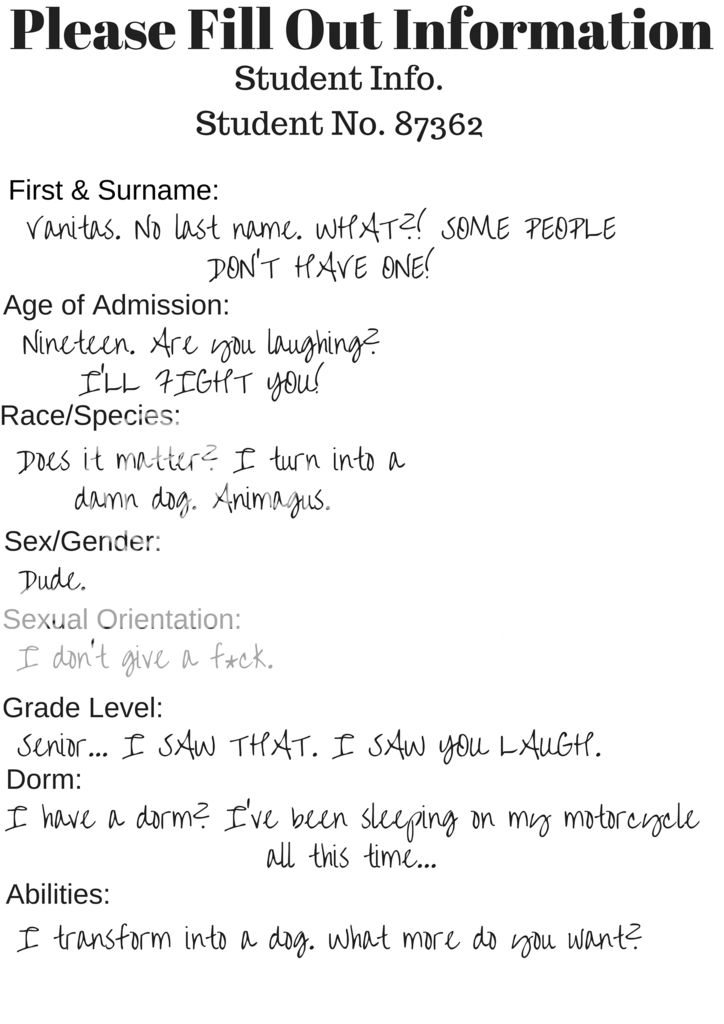 Please Fill Out Information
Student Info.
Student No. 87362
First & Surname:
Vanitas. No last name. WHAT?! SOME PEOPLE
DON'T HAVE ONE!
Age of Admission:
Nineteen. Are you laughing?
I'LL FIGHT YOU!
Race/Species:
Does it matter? I turn into a
damn dog. Animagus.
Sex/Gender:
Dude.
Sexual Orientation:
I don't give a f*ck.
Grade Level:
Senior... I SAW THAT. I SAW YOU LAUGH.
Dorm:
I have a dorm? I've been sleeping on my motorcycle
all this time...
Abilities:
I transform into a dog. What more do you want?